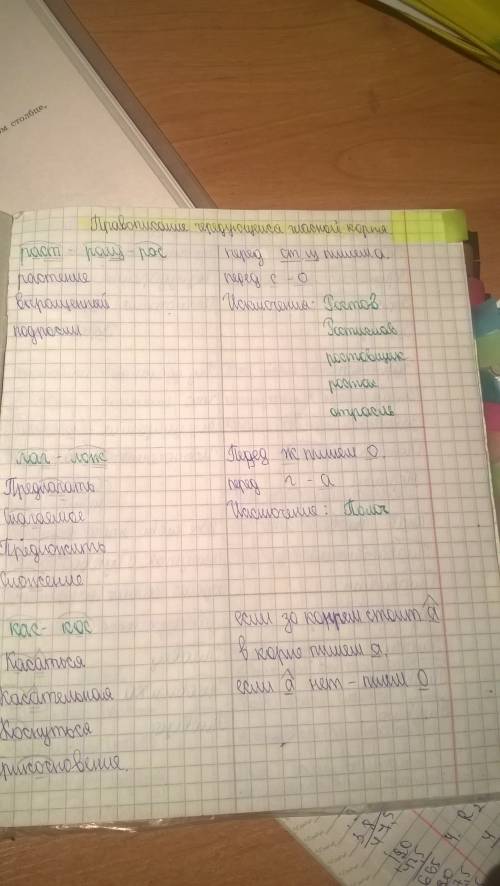 м столбце,
Правописание чередующейся гласной корня
раст - ращ - рос
перед ст, щ пишем а
растение
перед с - о
выращенной
Исключения: Ростов
подросли
Ростислав
ростовщик
росток
отрасль
лаг - лож
Перед ж пишем о.
Предлагать
перед г - а
Слагаемое
Исключение: Полог
Предложить
Сложение
кас - кос
если за корнем стоит а
Касаться
в корне пишем а
касательная
если а нет - пишем о
Коснуться
прикосновение.